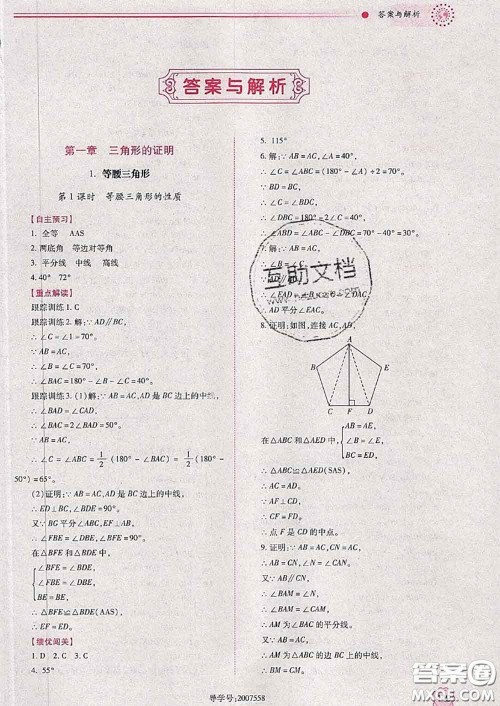 答案与解析
答案与解析
第一章 三角形的证明
1. 等腰三角形
第1课时 等腰三角形的性质
【自主预习】
1. 全等 AAS
2. 两底角 等边对等角
3. 平分线 中线 高线
4. 40° 72°
【重点解读】
跟踪训练1. C
跟踪训练2. 解:∵AD∥BC,
∴∠C=∠1=70°.
∵AB=AC,
∴∠B=∠C=70°,
∴∠BAC=180°-∠B-∠C=40°.
跟踪训练3. (1)解:∵AB=AC,AD是BC边上的中线,
∴∠BAD=∠CAD=50°,
∴∠BAC=2∠BAD=100°.
∵AB=AC,
∴∠C=∠ABC=1/2(180°-∠BAC)=1/2(180°-
50°)=65°.
(2)证明:∵AB=AC,AD是BC边上的中线,
∴ED⊥BC,∠BDE=90°.
又∵BG平分∠ABC,EF⊥AB,
∴∠BFE=∠BDE=90°.
在△BFE和△BDE中,
∠BFE=∠BDE,
∠FBE=∠DBE,
BE=BE,
∴△BFE≌△BDE(AAS),
∴EF=ED.
【绩优闯关】
1. D 2. C 3. C
4. 55°
5. 115°
6. 解:∵AB=AC,∠A=40°,
∴∠C=∠ABC=(180°-∠A)÷2=70°.
∵BD=BC,
∴∠C=∠BDC,
∴∠DBC=180°-2∠C=40°.
7. 解:∵AB=AC,
∴∠B=
∴∠EAD=∠B,∠C=∠DAC,
∴AD平分∠EAC.
8. 证明:如图,连接AC,AD.
A
B
E
C
F
D
在△ABC和△AED中,
AB=AE,
∠B=∠E,
BC=ED,
∴△ABC≌△AED(SAS),
∴AC=AD.
又∵AF⊥CD,
∴点F是CD的中点.
9. 证明:∵AB=AC,CN=AC,
∴AB=CN,∠N=∠CAN.
又∵AB∥CN,
∴∠BAM=∠N,
∴∠BAM=∠CAM,
∴AM为∠BAC的平分线.
又∵AB=AC,
∴AM为△ABC的边BC上的中线,
∴BM=CM.
互助文档
导学号:2007558
答案圈
MXQE.COM